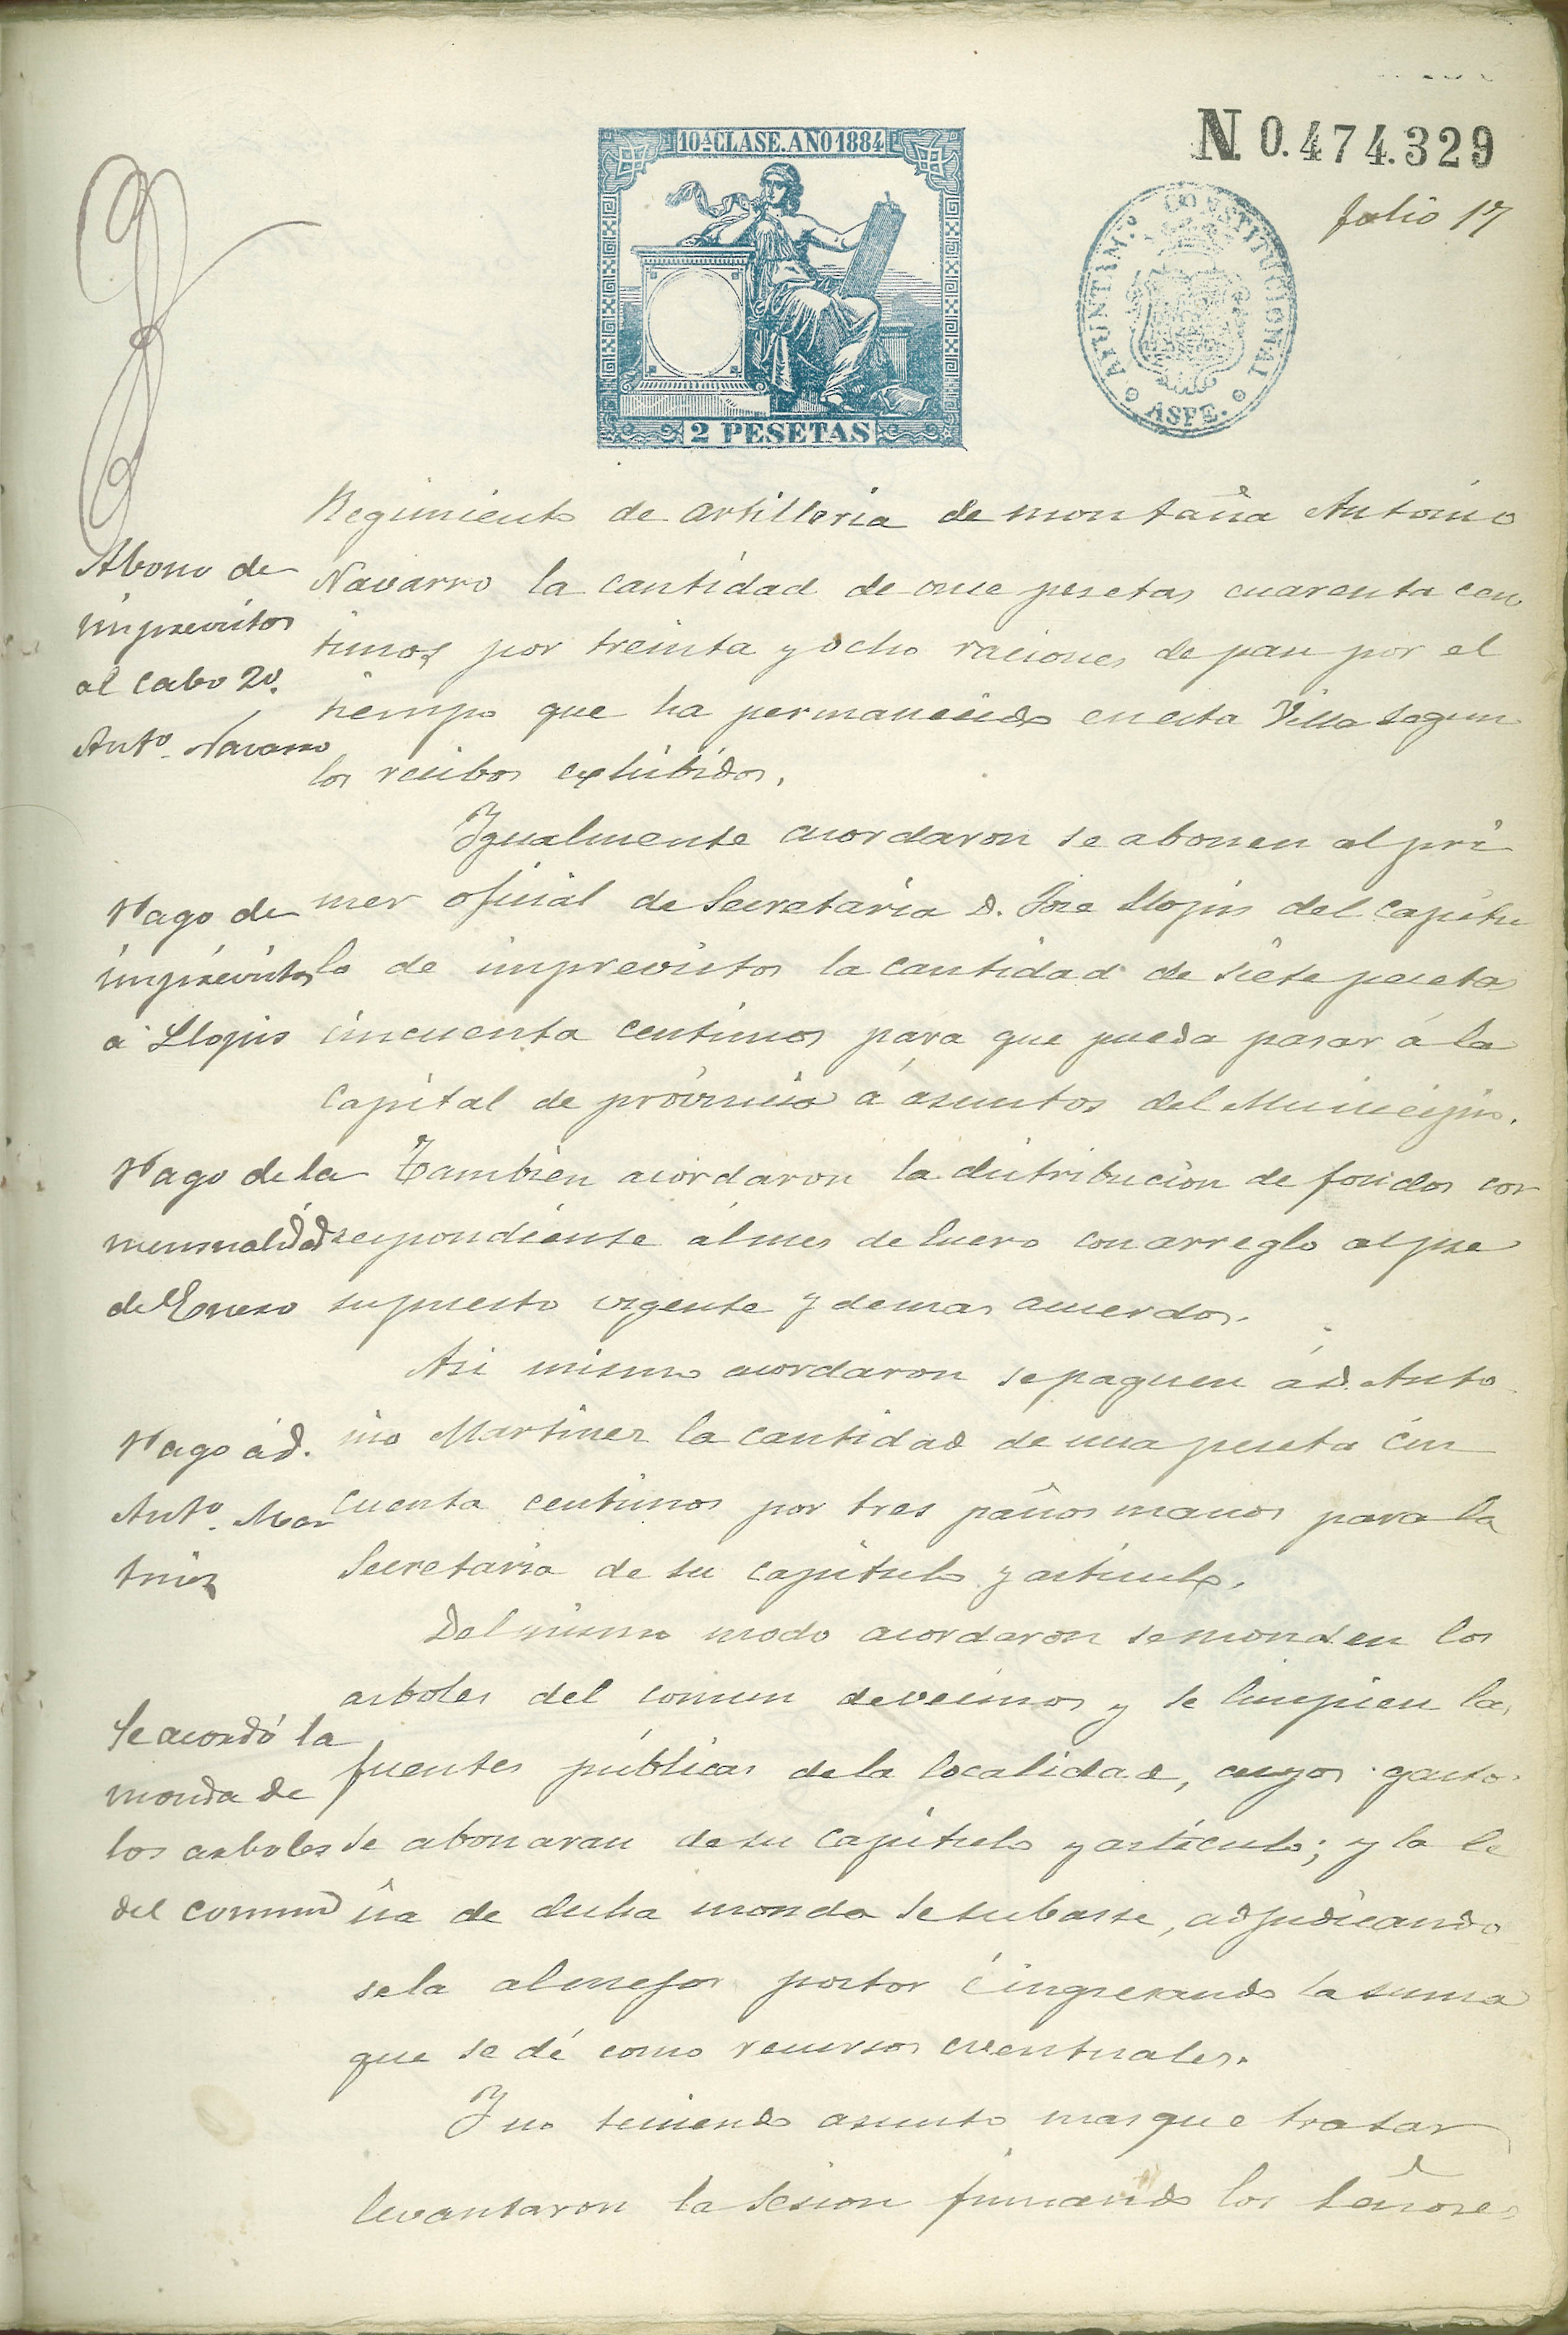 10ª CLASE. AÑO 1884
2 PESETAS
N. 0.474.329
folio 17
AYUNTAM.º CONSTITUCIONAL
ASPE.
Abono de
imprevistos
al Cabo 2º.
Antº. Navarro
Regimiento de artilleria de montaña Antonio
Navarro la cantidad de once pesetas cuarenta cen
timos por treinta y ocho raciones de pan por el
tiempo que ha permanecido en esta Villa segun
los recibos exhibidos.
Igualmente acordaron se abonen al pri
Pago de
imprevistos
á Llopis
mer oficial de Secretaria D. Jose Llopis del capitu
lo de imprevistos la cantidad de siete pesetas
cincuenta centimos para que pueda pasar á la
Capital de provincia á asuntos del Municipio.
Pago de la
mensualidad
de Enero
Tambien acordaron la distribucion de fondos cor
respondiente al mes de Enero con arreglo al pre
supuesto vigente y demas acuerdos.
Asi mismo acordaron se paguen á D. Anto
Pago á D.
Antº. Mar
tinez
nio Martinez la cantidad de una peseta cin
cuenta centimos por tres paños manos para la
Secretaria de su capitulo y articulo.
Del mismo modo acordaron se monden los
arboles del comun de vecinos y se limpien las
Se acordó la
monda de
los arboles
del comun
fuentes públicas de la localidad, cuyos gastos
se abonaran de su capitulo y artículo; y la le
ña de dicha monda se subaste, adjudicando
sela al mejor postor é ingresando la suma
que se dé como recursos eventuales.
Y no teniendo asunto mas que tratar
levantaron la Sesion firmando los Señores